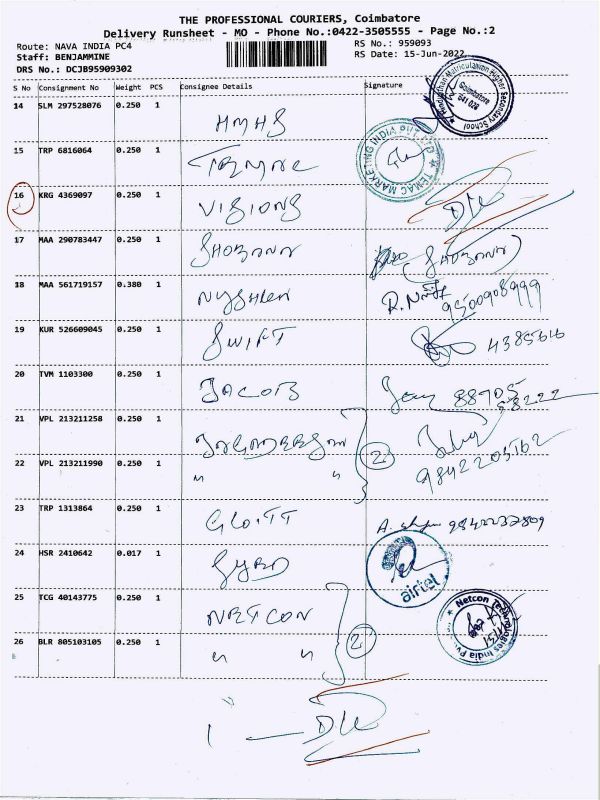 THE PROFESSIONAL COURIERS, Coimbatore
Delivery Runsheet - MO - Phone No.:0422-3505555 - Page No.:2
Route: NAVA INDIA PC4
RS No.: 959093
Staff: BENJAMMINE
RS Date: 15-Jun-2022
DRS No.: DCJB95909302
S No Consignment No Weight PCS Consignee Details Signature
14 SLM 297528076 0.250 1 HMHS
Coimbatore
641 028
15 TRP 6816064 0.250 1
TEMAC MARKETING INDIA
16 KRG 4369097 0.250 1 VISIONS
17 MAA 290783447 0.250 1 SHOBANA (SHOBANA)
18 MAA 561719157 0.380 1 9500908999
19 KUR 526609045 0.250 1 SWIFT 4385616
20 TVM 1103300 0.250 1 JACOB 88705
58222
21 VPL 213211258 0.250 1
2
9842205162
22 VPL 213211990 0.250 1 " "
23 TRP 1313864 0.250 1 9842232809
24 HSR 2410642 0.017 1
airtel
25 TCG 40143775 0.250 1 NETCON
2
Netcon Technologies India Pvt
26 BLR 805103105 0.250 1 " "